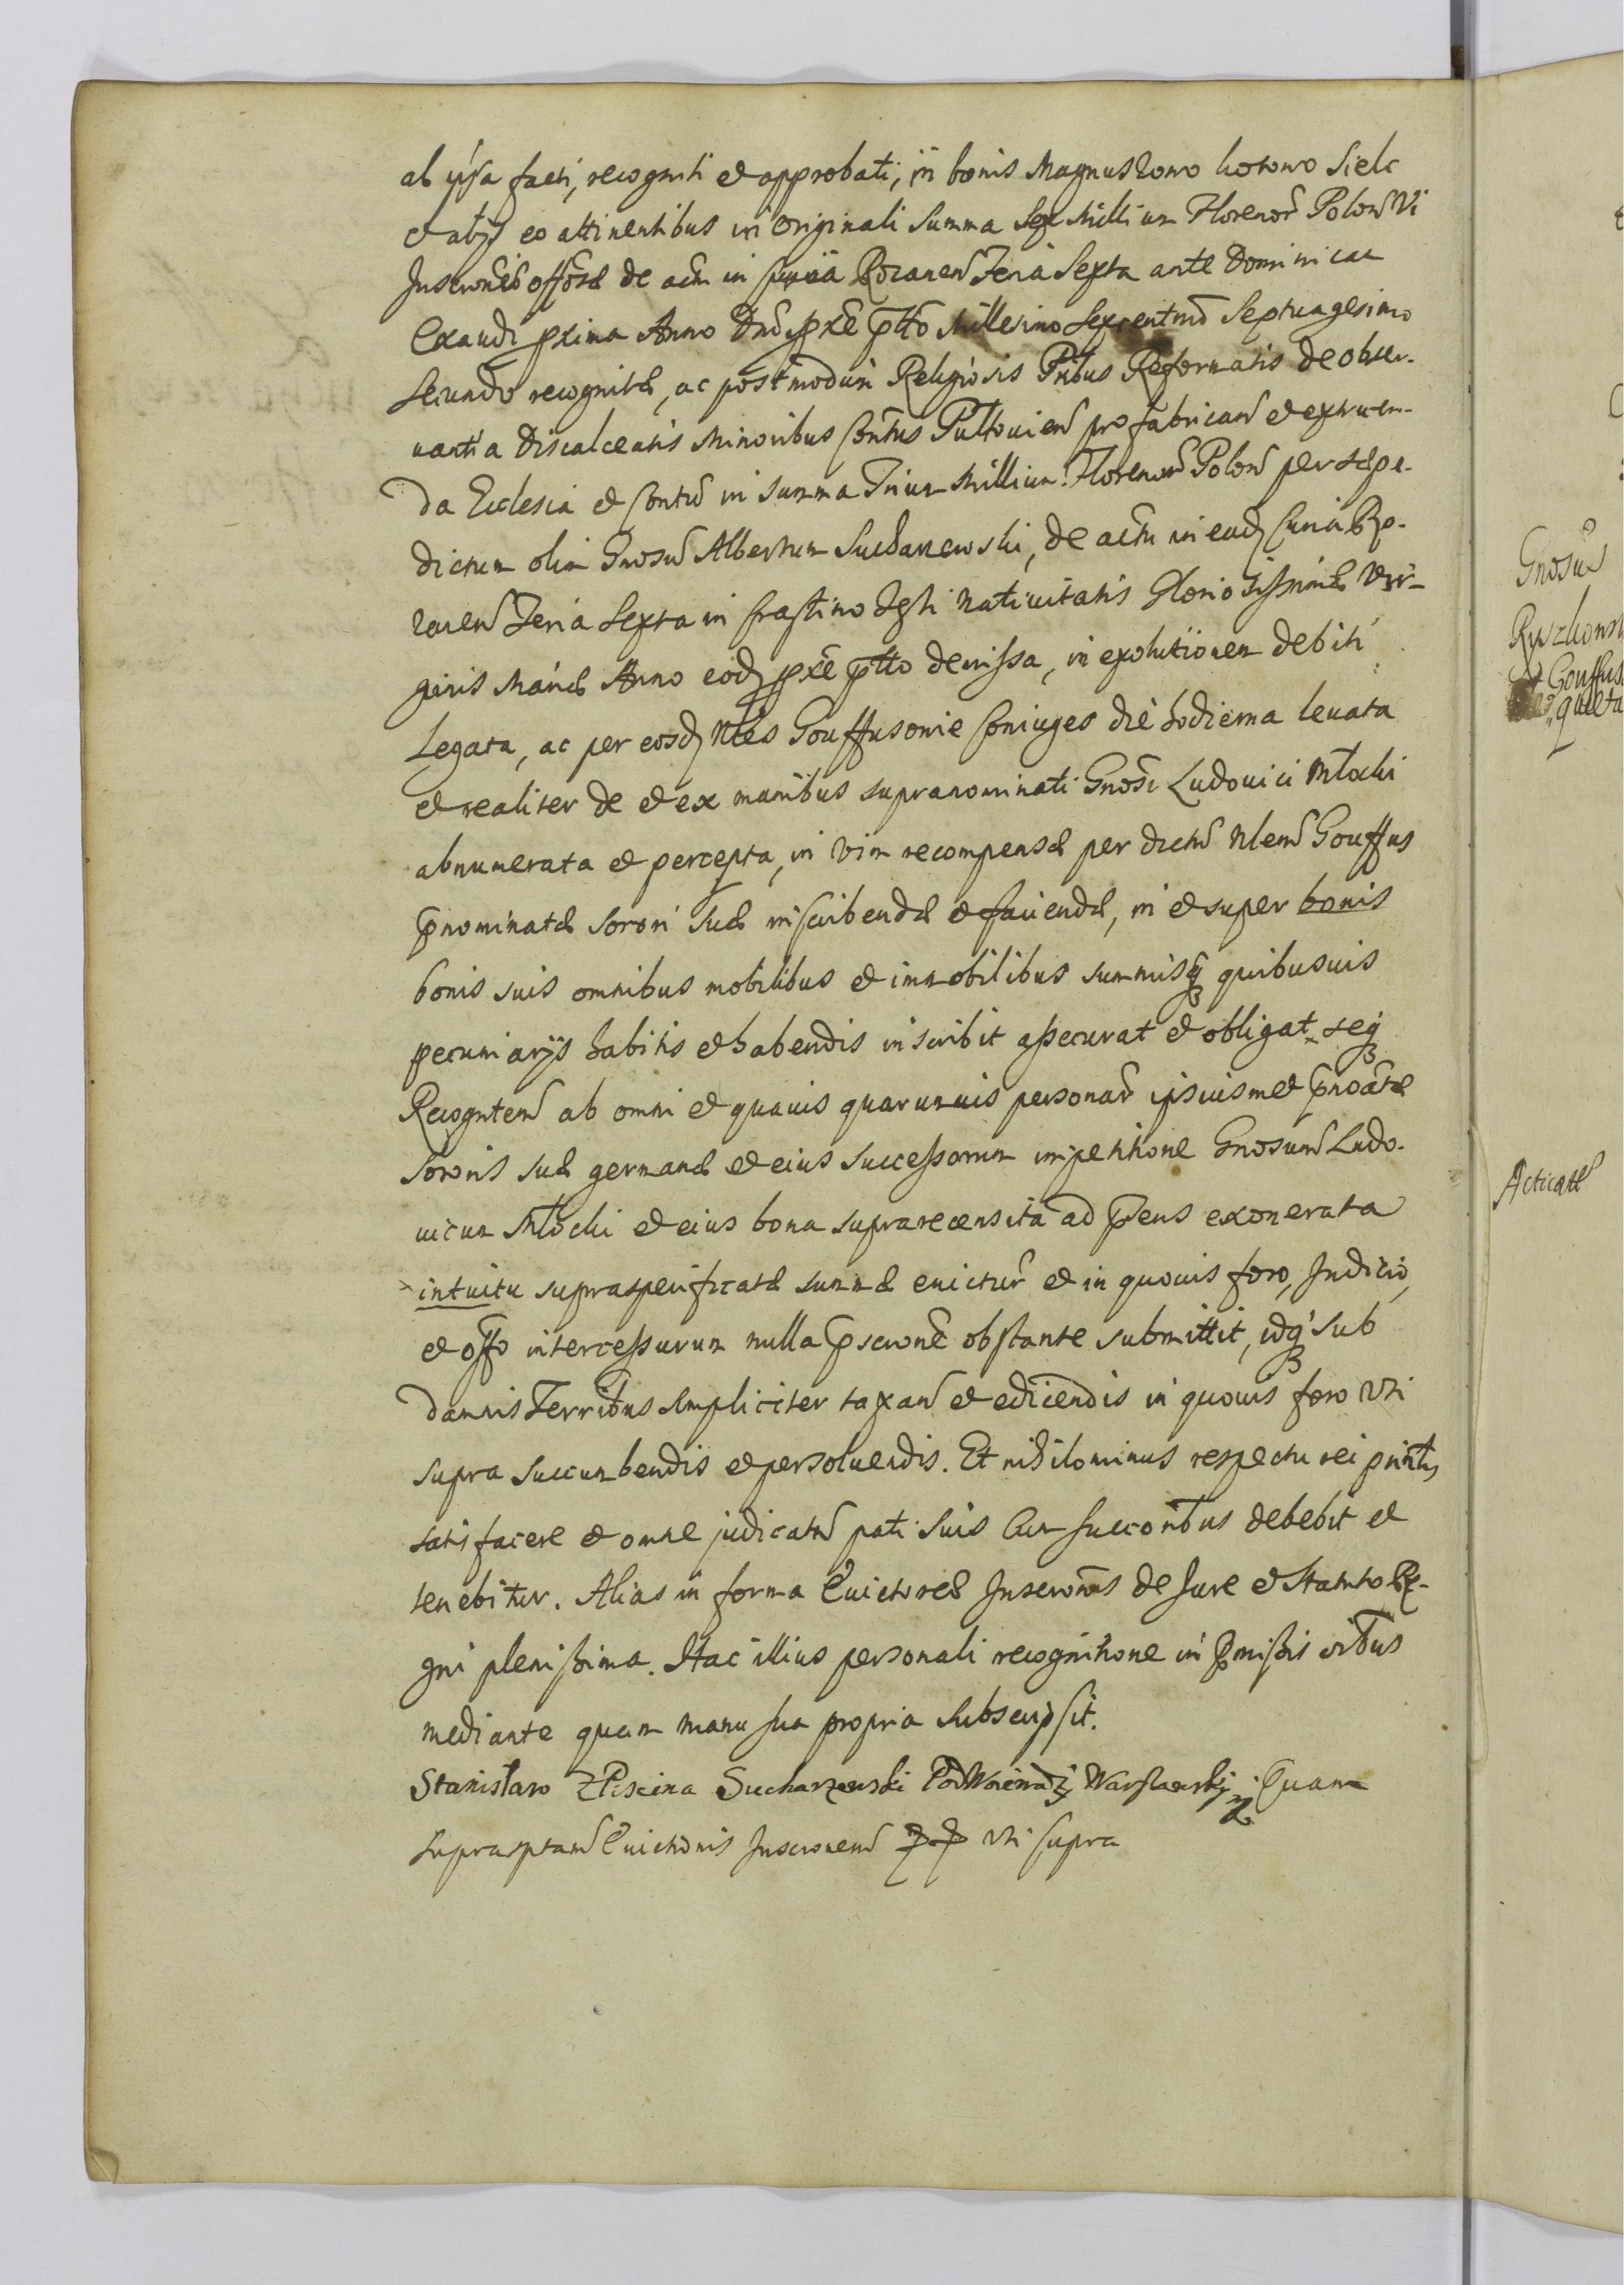 ab ipsa facti, recogniti et approbati, in bonis Magnuszowo kotowo Sielc
et alijs eo attinentibus in Originali Summa Sex Millium Florenor Polon Vi
Inscronis offose de actu in Curia Rozanen Feria Sexta ante Dominicae
Exaudi pxima Anno Dni pxe ptto Millesimo Sexcentmo Septuagesimo
Secundo recognitae, ac postmodum Religiosis Pribus Reformatis de obser-
uantia Discalceatis Minoribus Contus Pultouien pro fabrican et extruen-
da Ecclesia et Contu in Summa Trium Millium Florenor Polon per saepe-
dictum olim Gnosu Albertum Sucharzewski, de actu in ead Curia Ro-
zanen Feria Sexta in Crastino Festi Natiuitatis Gloriosissimae Vir-
ginis Mariae Anno eod pxe ptto demissa, in exolutionem debiti
Legata, ac per eosd Nles Gouffusowie Coniuges die hodierna leuata
et realiter de et ex manibus supranominati Gnosi Ludouici Mlocki
abnumerata et percepta, in vim recompensae per dictu Nlem Gouffus
pnominatae sorori suae inscribendae et faciendae, in et super bonis
bonis suis omnibus mobilibus et immobilibus summisq quibusuis
pecuniarijs habitis et habendis inscribit assecurat et obligat seq
Recognten ab omni et quauis quarumuis personar ipsiusmet pnoatae
Sororis suae germanae et eius successorum impetitione Gnosum Ludo-
uicum Mlocki et eius bona suprarecensita ad pens exonerata
intuitu supraspecificatae summae euictur et in quouis foro, Judicio,
et offo intercessurum nulla pscrone obstante submittit, idq sub
damnis Terribus simpliciter taxan et edicendis in quouis foro Vti
supra succumbendis et persoluendis. Et nihilominus respectu rei printis
satisfacere et omne judicatu pati suis Cum succoribus debebit et
tenebitur. Alias in forma Euictoreae Inscronis de Jure et Statuto Re-
gni plenissima. Hac illius personali recognitione in pmissis oibus
mediante quam manu sua propria subscripsit.
Stanisław z Piscina Sucharzewski PodWoiewodzy Warszawskij Quam
supraptam Euictionis Inscronem Vti supra
Gnosus
Ryszkowsk
Gouffus
quieta
Acticatae